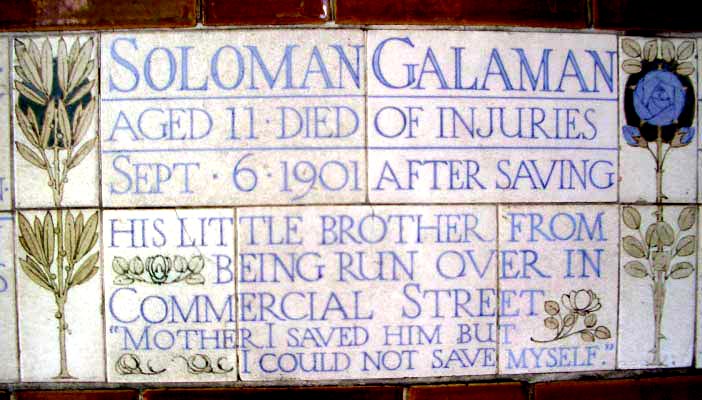 SOLOMAN GALAMAN
AGED 11 · DIED OF INJURIES
SEPT · 6 · 1901 AFTER SAVING
HIS LITTLE BROTHER FROM
BEING RUN OVER IN
COMMERCIAL STREET
"MOTHER I SAVED HIM BUT
I COULD NOT SAVE MYSELF."